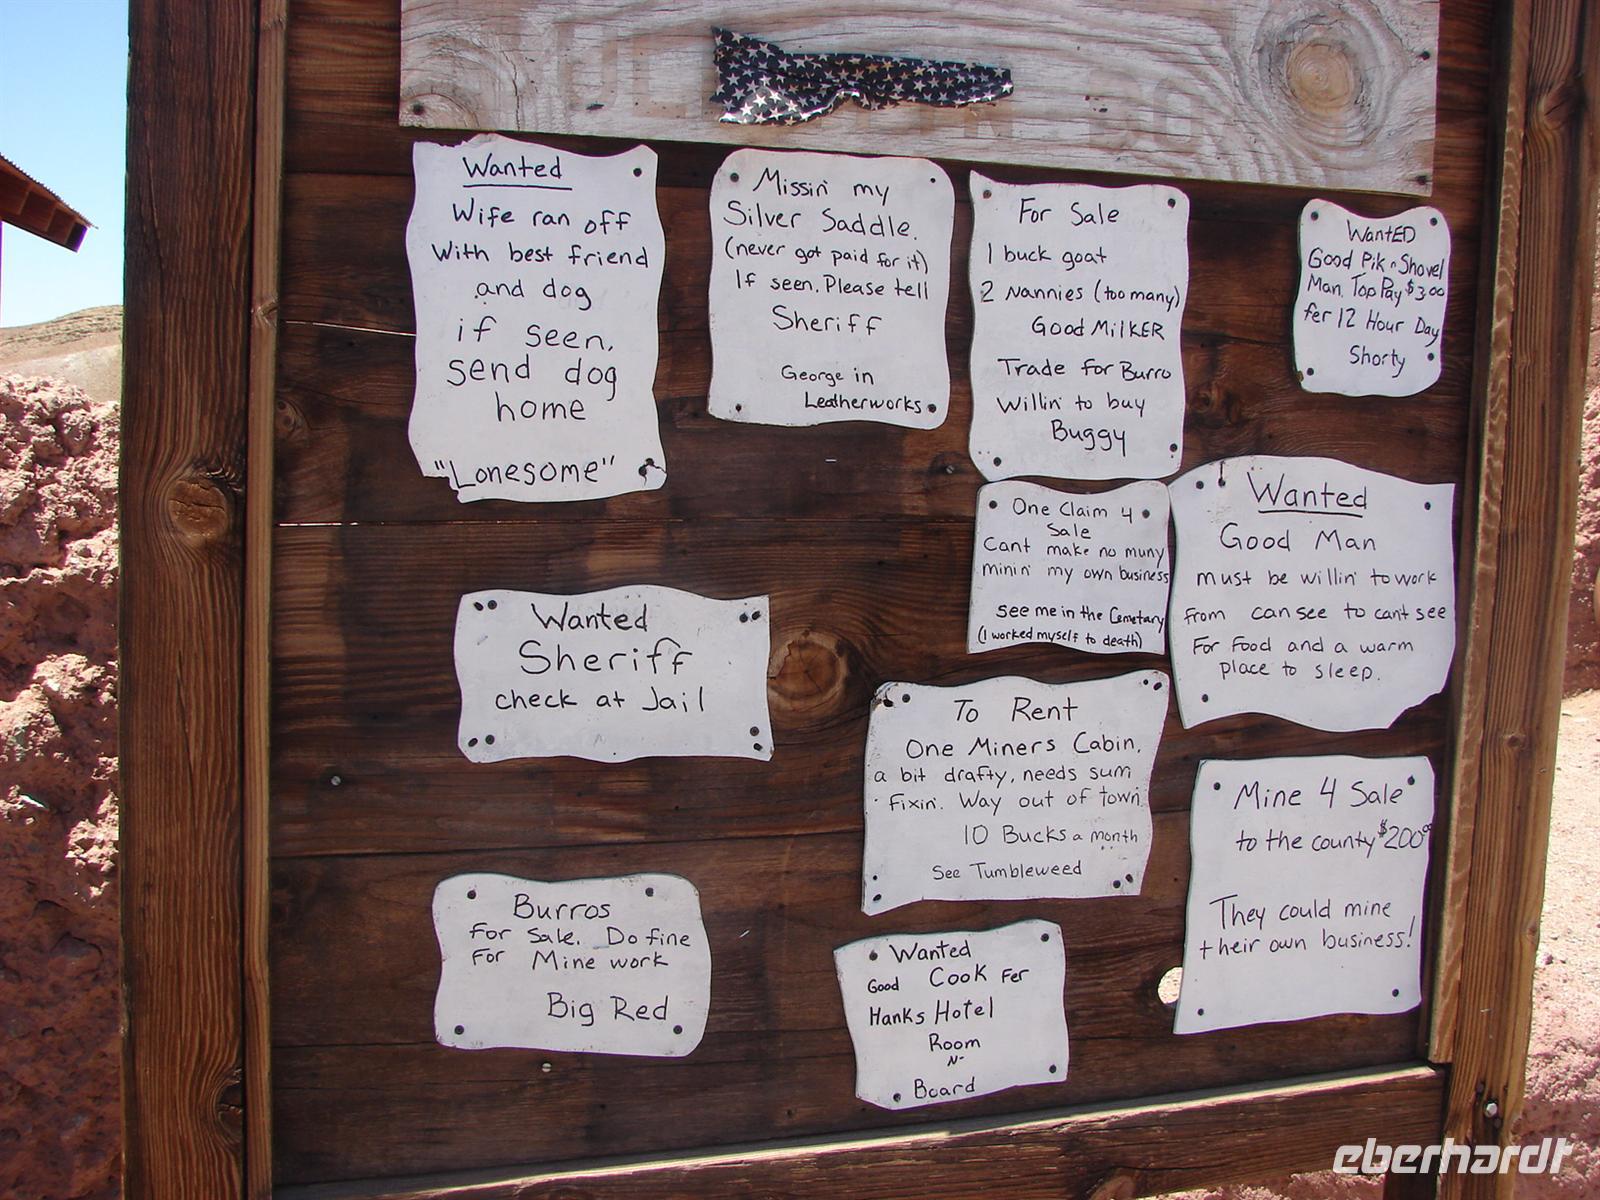 Wanted
Wife ran off
With best friend
and dog
if seen,
send dog
home
"Lonesome"
Missin' my
Silver Saddle.
(never got paid for it)
If seen, Please tell
Sheriff
George in
Leatherworks
For Sale
1 buck goat
2 Nannies (too many)
Good MilKER
Trade for Burro
Willin' to buy
Buggy
WantED
Good Pik n Shovel
Man. Top Pay $3.00
fer 12 Hour Day
Shorty
One Claim 4
Sale
Cant make no muny
minin' my own business
see me in the Cemetary
(I worked myself to death)
Wanted
Good Man
must be willin' to work
from can see to can't see
For Food and a warm
place to sleep.
Wanted
Sheriff
check at Jail
To Rent
One Miners Cabin,
a bit drafty, needs sum
fixin'. Way out of town
10 Bucks a month
See Tumbleweed
Mine 4 Sale
to the county $200.00
They could mine
their own business!
Burros
For Sale. Do fine
For Mine work
Big Red
Wanted
Good Cook Fer
Hanks Hotel
Room
N-
Board
eberhardt